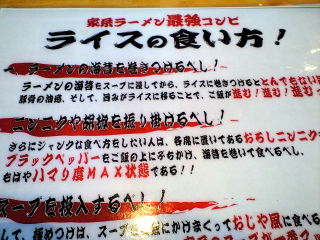 家系ラーメン最強コンビ
ライスの食い方！
ラーメンの海苔を巻きつけるべし！
ラーメンの海苔をスープに浸してから、ライスに巻きつけるととんでもない
豚骨の油感、そして、旨みがライスに移ることで、ご飯が進む！進む！
ニンニクや胡椒を振り掛けるべし！
さらにジャンクな食べ方をしたい人は、各席に置いてあるおろしニンニク
ブラックペッパーをご飯の上にぶちかけ、海苔を巻いて食べるべし、
もはやハマり度MAX状態である！！
スープを投入するべし！
して、極めつけは、スープを
にかけまくっておじや風に食べる